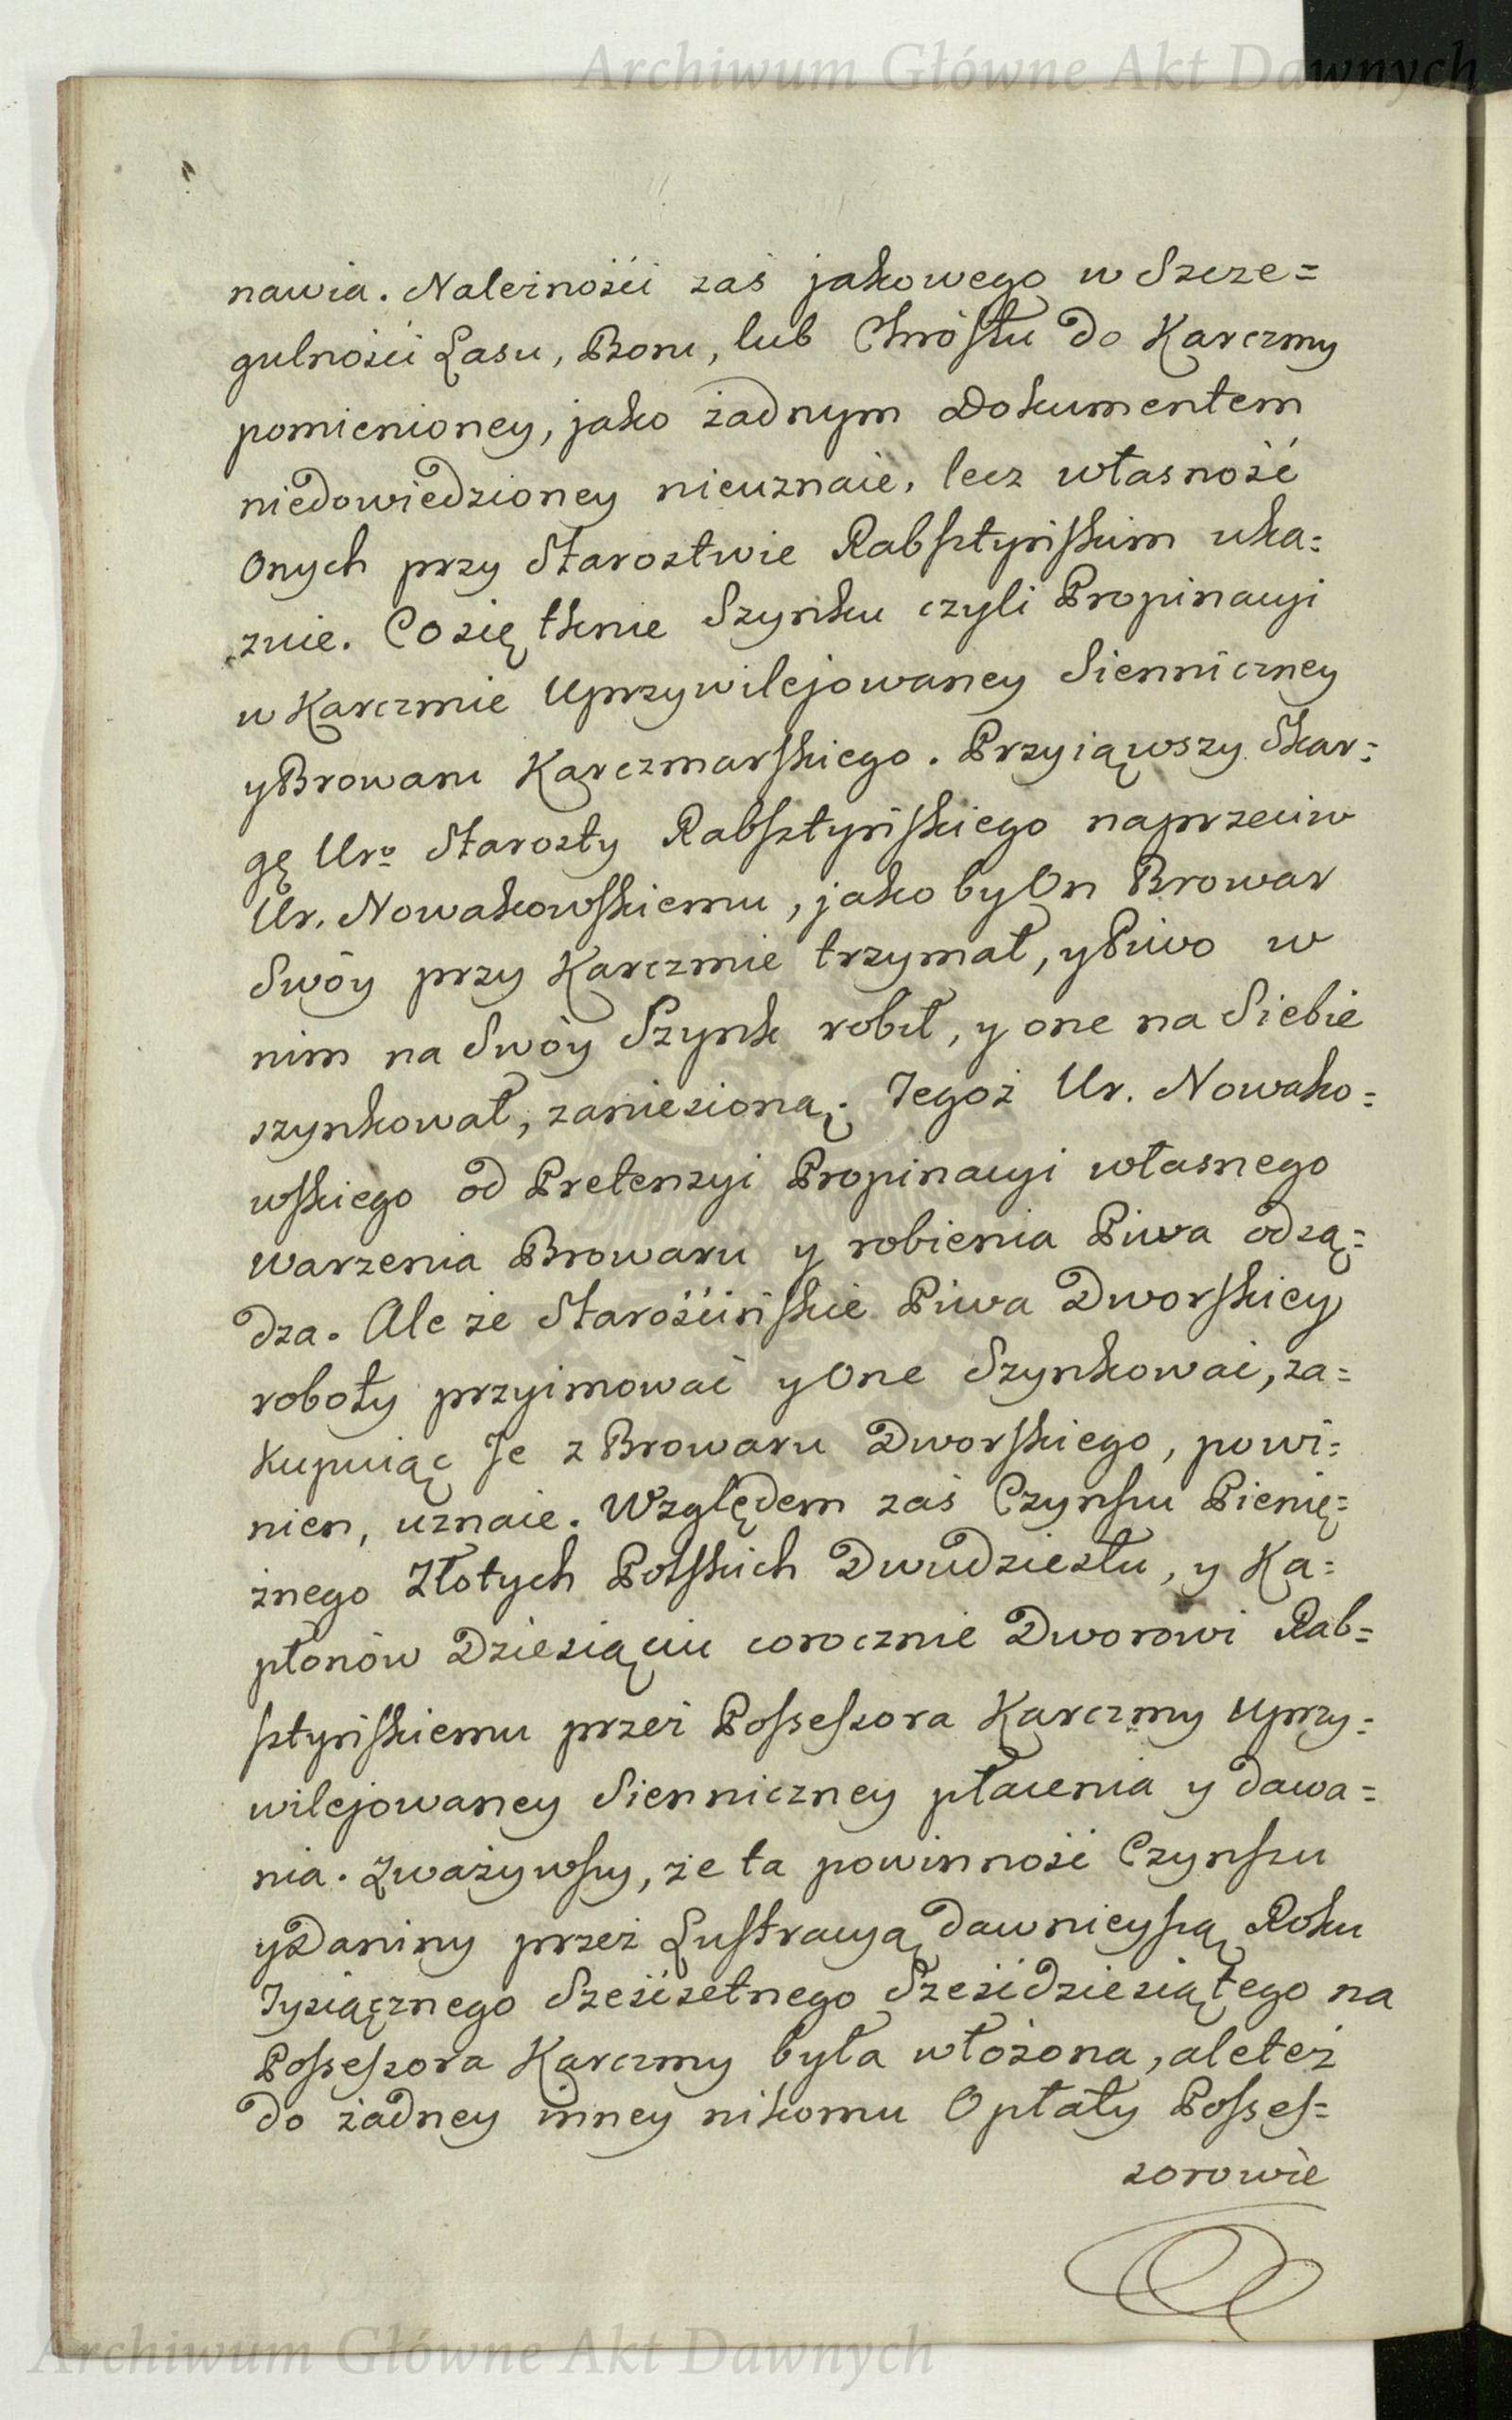 Archiwum Główne Akt Dawnych
nawia. Należności zaś jakowego w Szcze=
gulności Lasu, Boru, lub Chróstu do Karczmy
pomienioney, jako żadnym Dokumentem
niedowiedzioney nieuznaie, lecz własność
Onych przy Starostwie Rabsztyńskim uka=
zuie. Co się tknie Szynku czyli Propinacyi
w Karczmie Uprzywilejowaney Sienniczney
y Browaru Karczmarskiego. Przyiąwszy Skar=
gę Uro Starosty Rabsztyńskiego naprzeciw
Ur. Nowakowskiemu, jako by On Browar
Swóy przy Karczmie trzymał, y Piwo w
nim na Swóy Szynk robił, y one na Siebie
szynkował, zaniesioną. Tegoż Ur. Nowako=
wskiego od Pretensyi Propinacyi własnego
warzenia Browaru y robienia Piwa odsą=
dza. Ale że Starościńskie Piwa Dworskiey
roboty przyimować y One Szynkować, za=
kupuiąc Je z Browaru Dworskiego, powi=
nien, uznaie. Względem zaś Czynszu Pienię=
żnego Złotych Polskich Dwudziestu, y Ka=
płonów Dziesiąciu corocznie Dworowi Rab=
sztyńskiemu przez Possessora Karczmy Uprzy=
wilejowaney Sienniczney płacenia y dawa=
nia. Zważywszy, że ta powinność Czynszu
y Daniny przez Lustracyą dawnieyszą Roku
Tysiącznego Sześćsetnego Sześćdziesiątego na
Possessora Karczmy była włożona, ale też
do żadney inney nikomu Opłaty Posses=
sorowie
Archiwum Główne Akt Dawnych